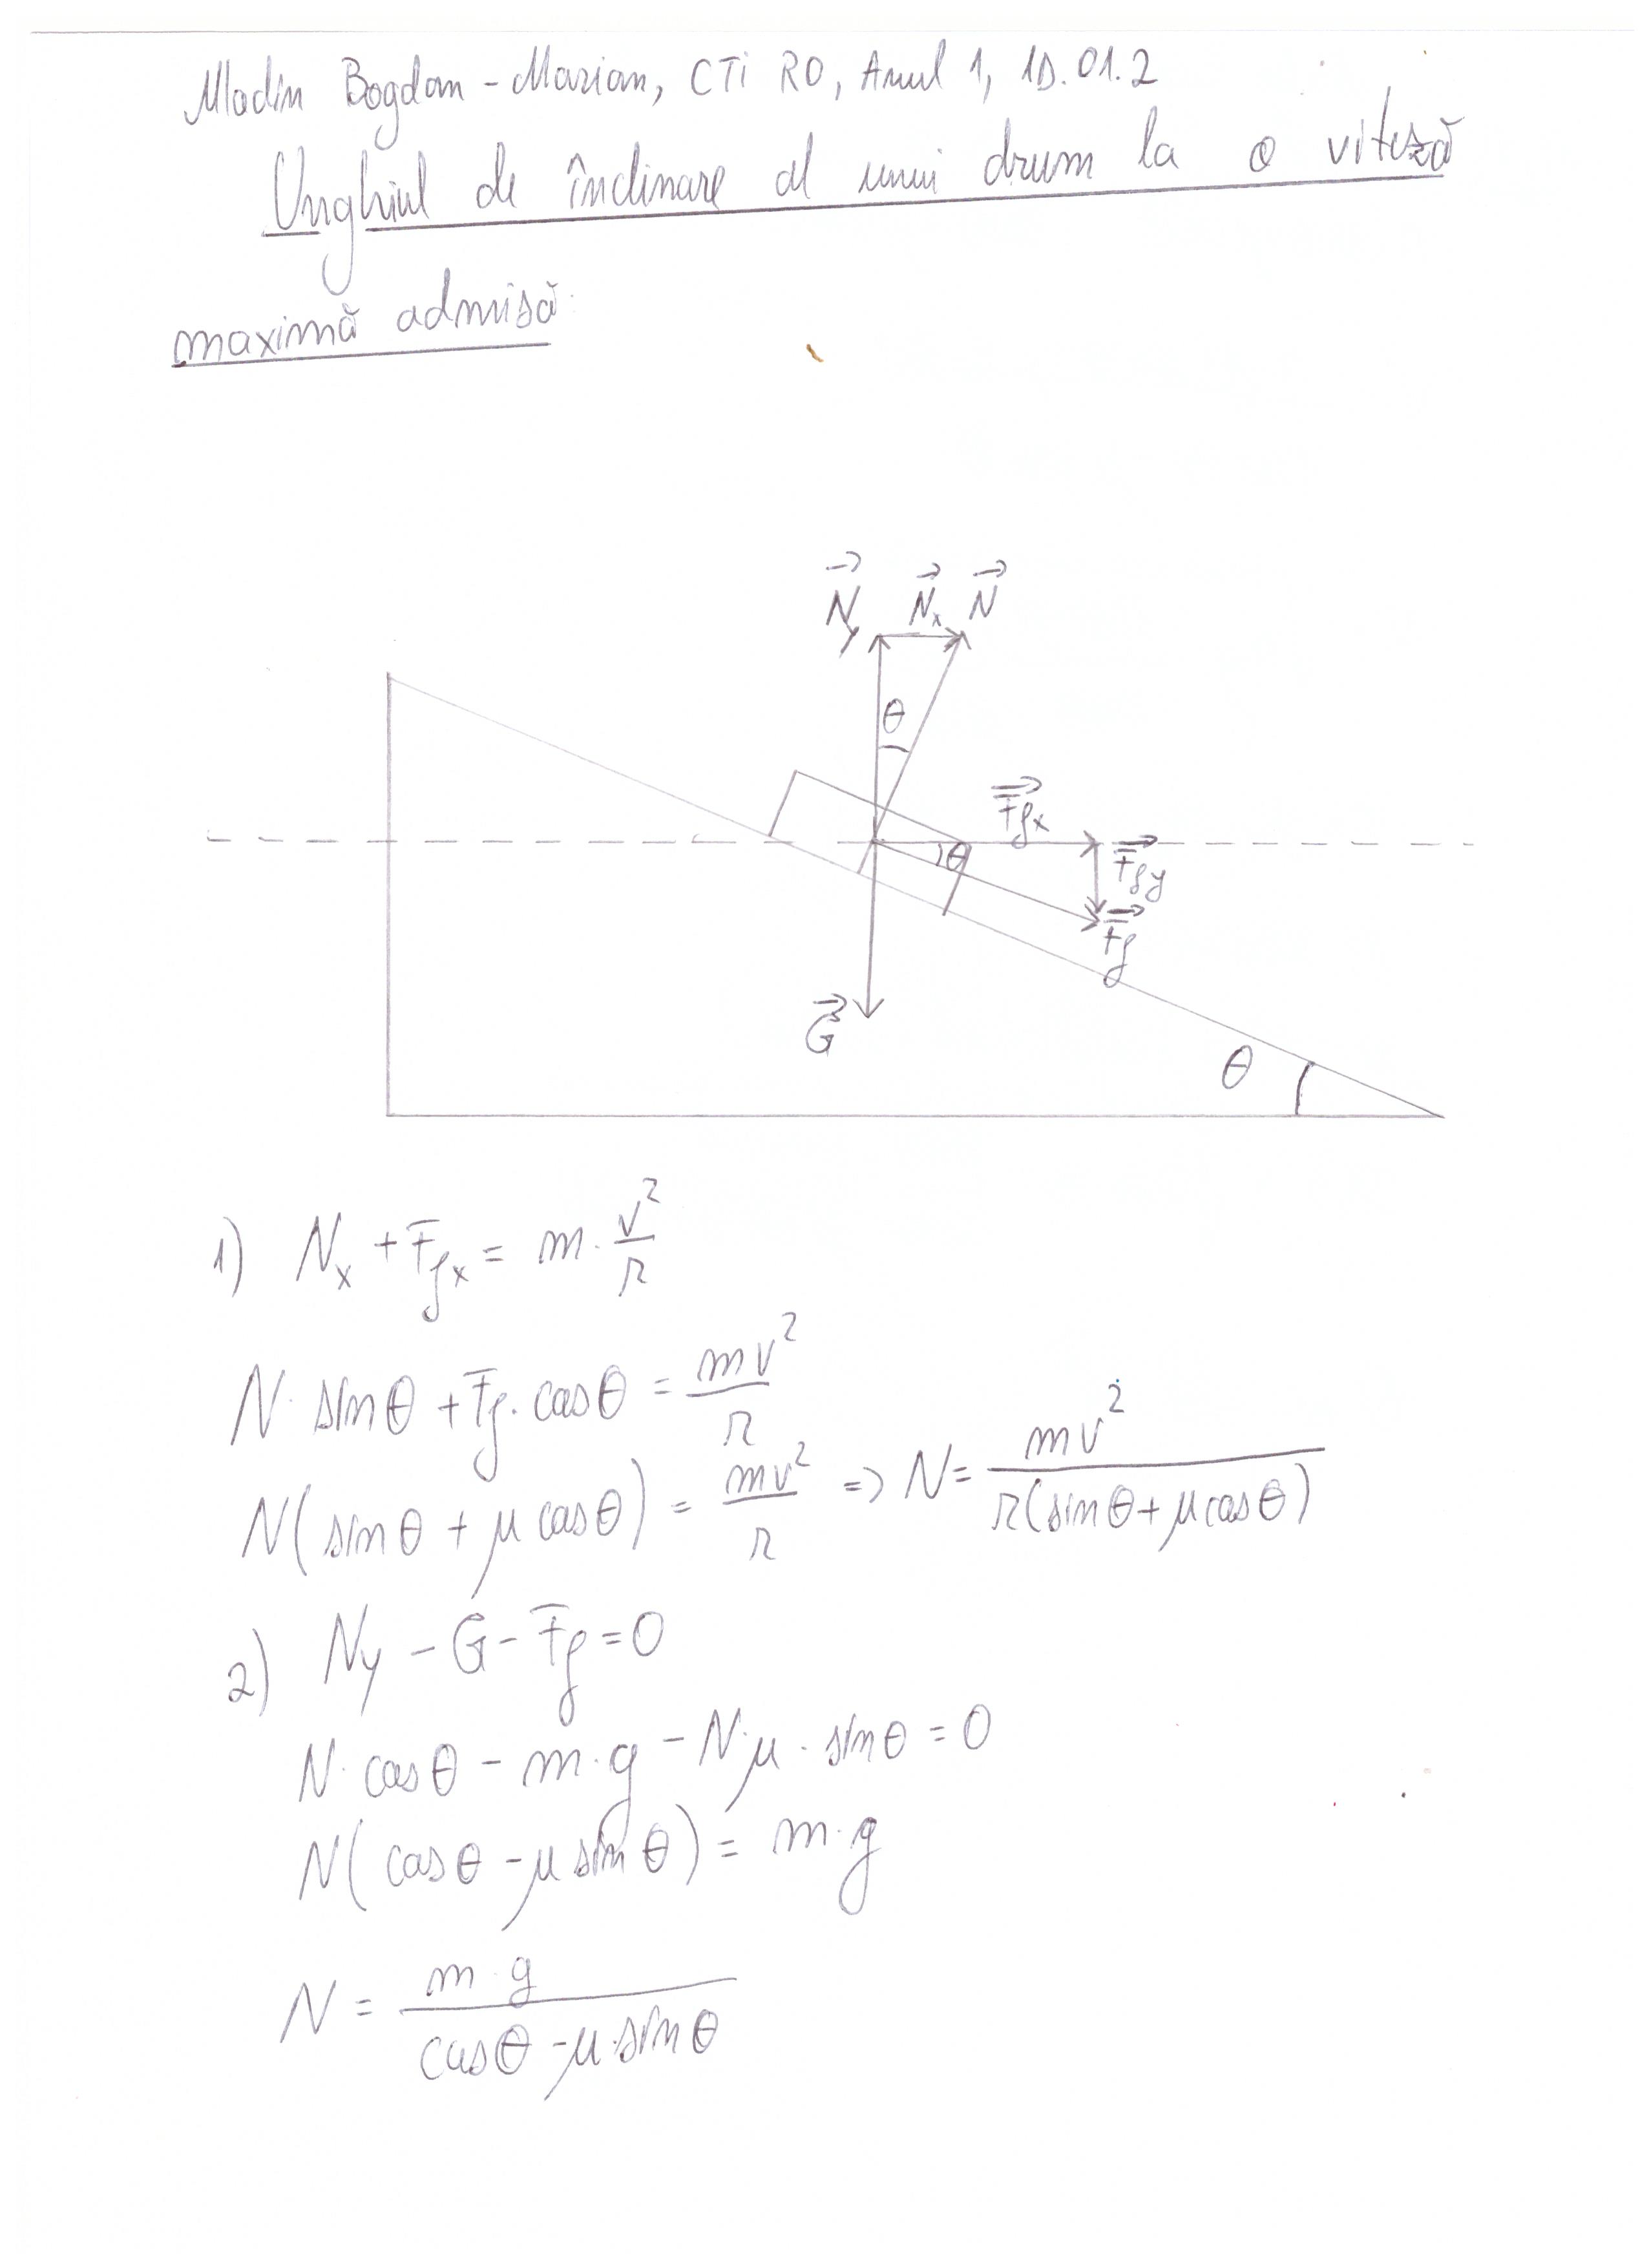 Mladin Bogdan-Marian, CTI RO, Anul 1, 1D.01.2
Unghiul de înclinare al unui drum la o viteză
maximă admisă
N⃗y N⃗x N⃗
θ
F⃗fx
θ
F⃗fy
F⃗f
G⃗
θ
1) Nx + Ffx = m · v²/r
N · sinθ + Ff · cosθ = mv²/r
N(sinθ + μ cosθ) = mv²/r => N = mv²/r(sinθ + μ cosθ)
2) Ny - G - Ff = 0
N · cosθ - m · g - N · μ · sinθ = 0
N(cosθ - μ sinθ) = m · g
N = m · g/cosθ - μ · sinθ